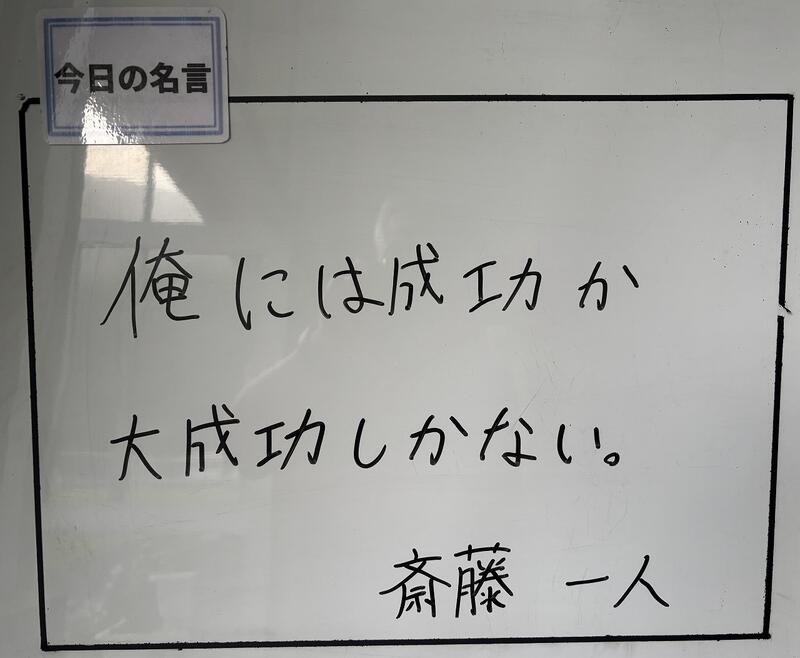 今日の名言
俺には成功か
大成功しかない。
斎藤 一人